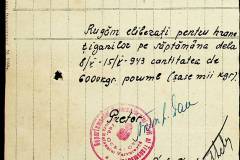 Rugăm eliberați pentru hrana
țiganilor pe săptămâna dela
8/I - 15/I - 943 cantitatea de
6000 kgr. porumb (șase mii kgr.)
Pretor